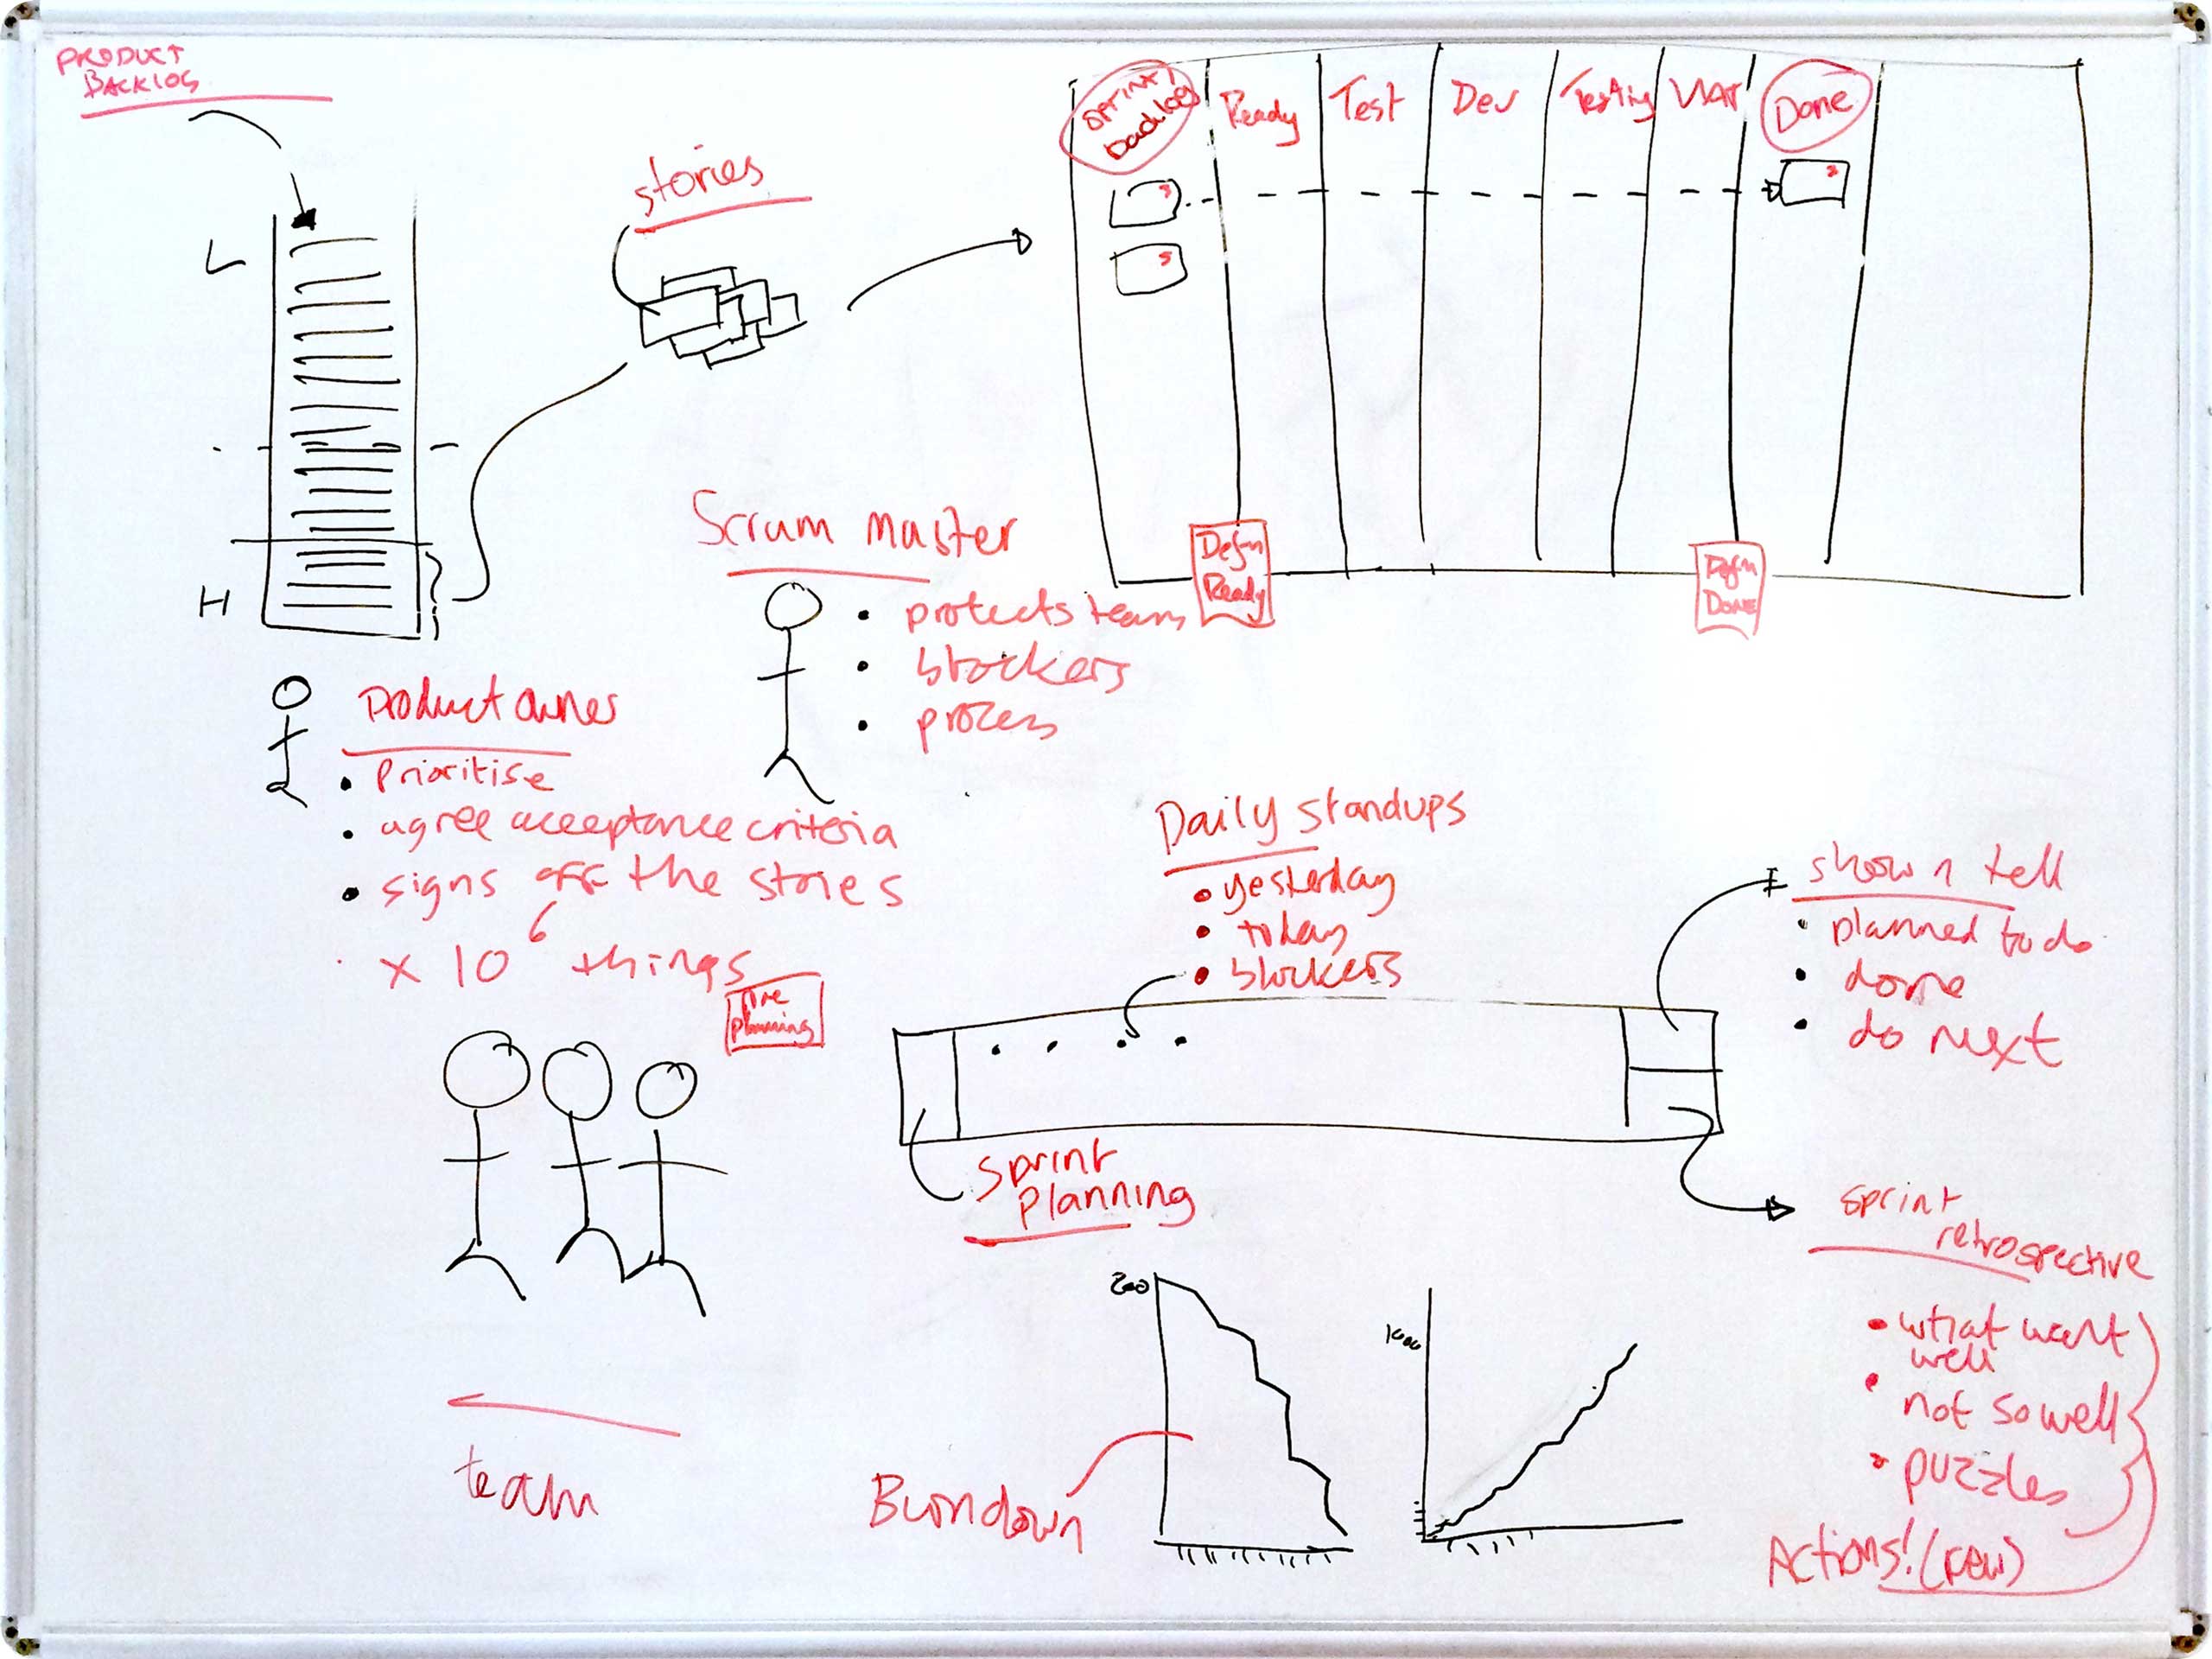 PRODUCT
BACKLOG
L
H
stories
sprint
backlog
Ready
Test
Dev
Testing
UAT
Done
3
5
3
Defn
Ready
Defn
DONE
Scrum Master
• protects team
• blockers
• process
Product owner
• Prioritise
• agree acceptance criteria
• signs off the stories
• x 10⁶ things
Pre
planning
team
Daily standups
• yesterday
• today
• blockers
Sprint
Planning
show n tell
• planned to do
• done
• do next
sprint
retrospective
• what went
well
• not so well
• puzzles
Actions! (few)
Burndown
200